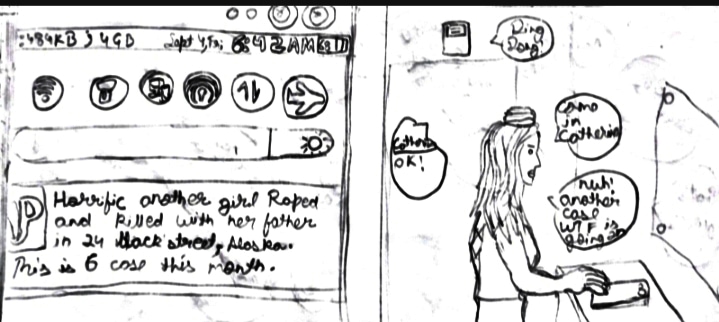 :484KB 5 4GB Sept 4, Fri 6:42 AM
P
Horrific another girl Raped
and killed with her father
in 24 street, Alaska.
This is 6 case this month.
Ding
Dong!
Come
in
Catherin
Catherin
OK!
nuh!
another
case
WTF is
going